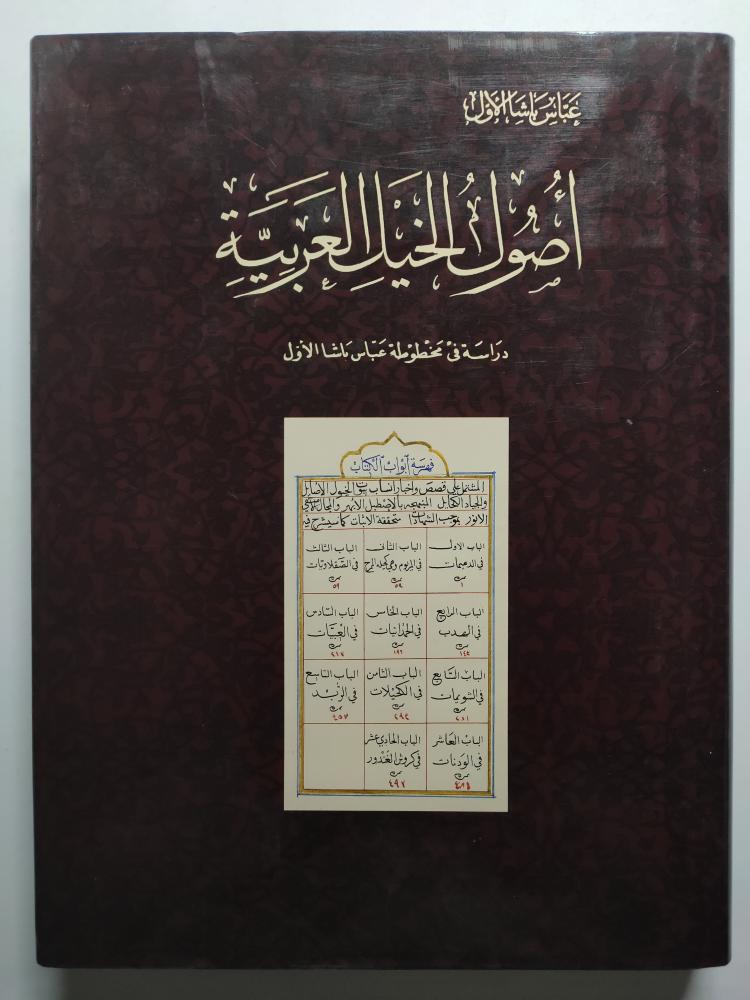 عَبَّاس بَاشَا الأَوَّل
أُصُولُ الخَيْلِ العَرَبِيَّةِ
دراسَة في مَخطوطة عَبّاس باشا الأوَل
فهرسة أبواب الكتاب
المشتمل على قصص واخبار انساب بيوت الخيول الاصايل
والجياد الكحايل المنتجعه بالاصطبل الانور والمجال
الانور بموجب الشهادات متحققة الاثبات كما سيشرح فيه
الباب الاول في الدهيمات ١
الباب الثاني في الربوم وهي كحيلة ٥٤
الباب الثالث في الصقلاويات ٥٩
الباب الرابع في الهدب ١٤٥
الباب الخامس في الحمدانيات ١٩٦
الباب السادس في العبيات ٢١٧
الباب السابع في الشويمات ٢٥١
الباب الثامن في الكحيلات ٢٩٤
الباب التاسع في الربد ٤٥٧
الباب العاشر في الودنات
الباب الحادي عشر في كروش الغندور ٤٩٢